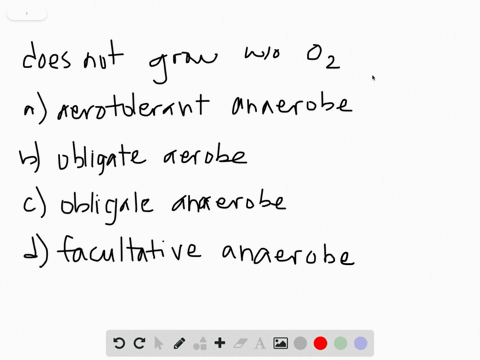 does not grow w/o O2
a) aerotolerant anaerobe
b) obligate aerobe
c) obligale anaerobe
d) facultative anaerobe